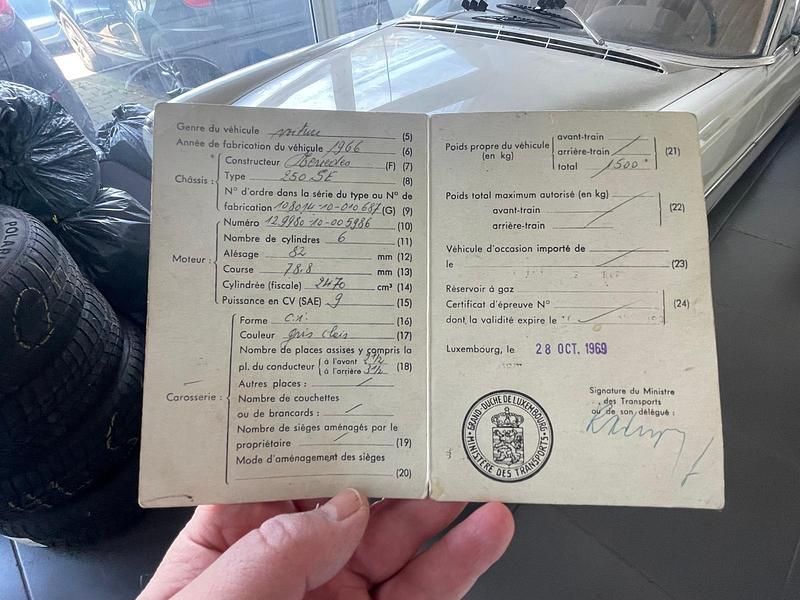 Genre du véhicule voiture (5)
Année de fabrication du véhicule 1966 (6)
Châssis :
Constructeur Mercedes (F) (7)
Type 250 SE (8)
N° d'ordre dans la série du type ou N° de
fabrication 108014-10-010687 (G) (9)
Moteur :
Numéro 129980-10-005986 (10)
Nombre de cylindres 6 (11)
Alésage 82 mm (12)
Course 78.8 mm (13)
Cylindrée (fiscale) 2470 cm³ (14)
Puissance en CV (SAE) 9 (15)
Carosserie :
Forme c.i. (16)
Couleur gris clair (17)
Nombre de places assises y compris la
pl. du conducteur à l'avant (18)
à l'arrière
Autres places :
Nombre de couchettes
ou de brancards :
Nombre de sièges aménagés par le
propriétaire (19)
Mode d'aménagement des sièges
(20)
Poids propre du véhicule
(en kg)
avant-train
arrière-train
total 1500 (21)
Poids total maximum autorisé (en kg)
avant-train (22)
arrière-train
Véhicule d'occasion importé de
le (23)
Réservoir à gaz
Certificat d'épreuve N° (24)
dont la validité expire le
Luxembourg, le 28 OCT. 1969
Signature du Ministre
des Transports
ou de son délégué :
GRAND-DUCHÉ DE LUXEMBOURG
MINISTÈRE DES TRANSPORTS
POLAR